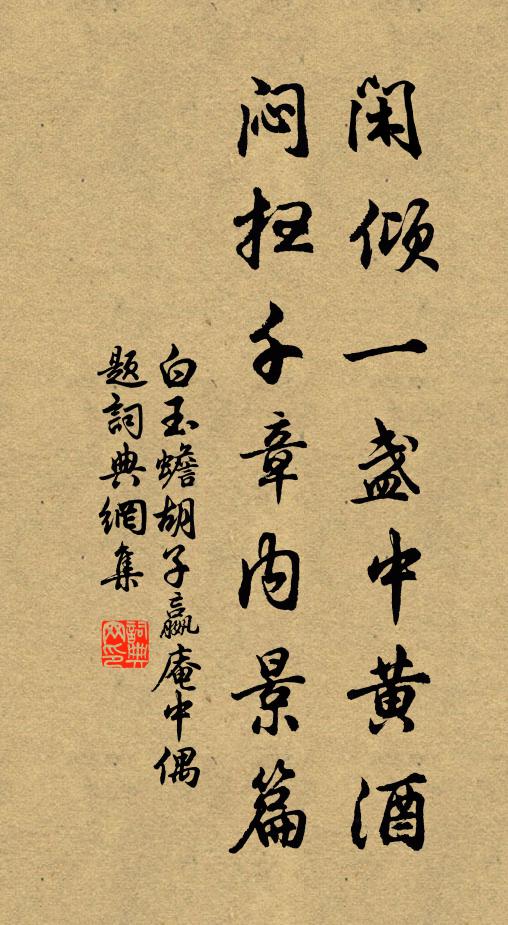 闲倾一盏中黄酒
闷扫千章内景篇
白玉蟾胡子嬴庵中偶
题詞典網集
詞典
网印